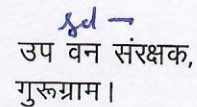 sd -
उप वन संरक्षक,
गुरूग्राम।